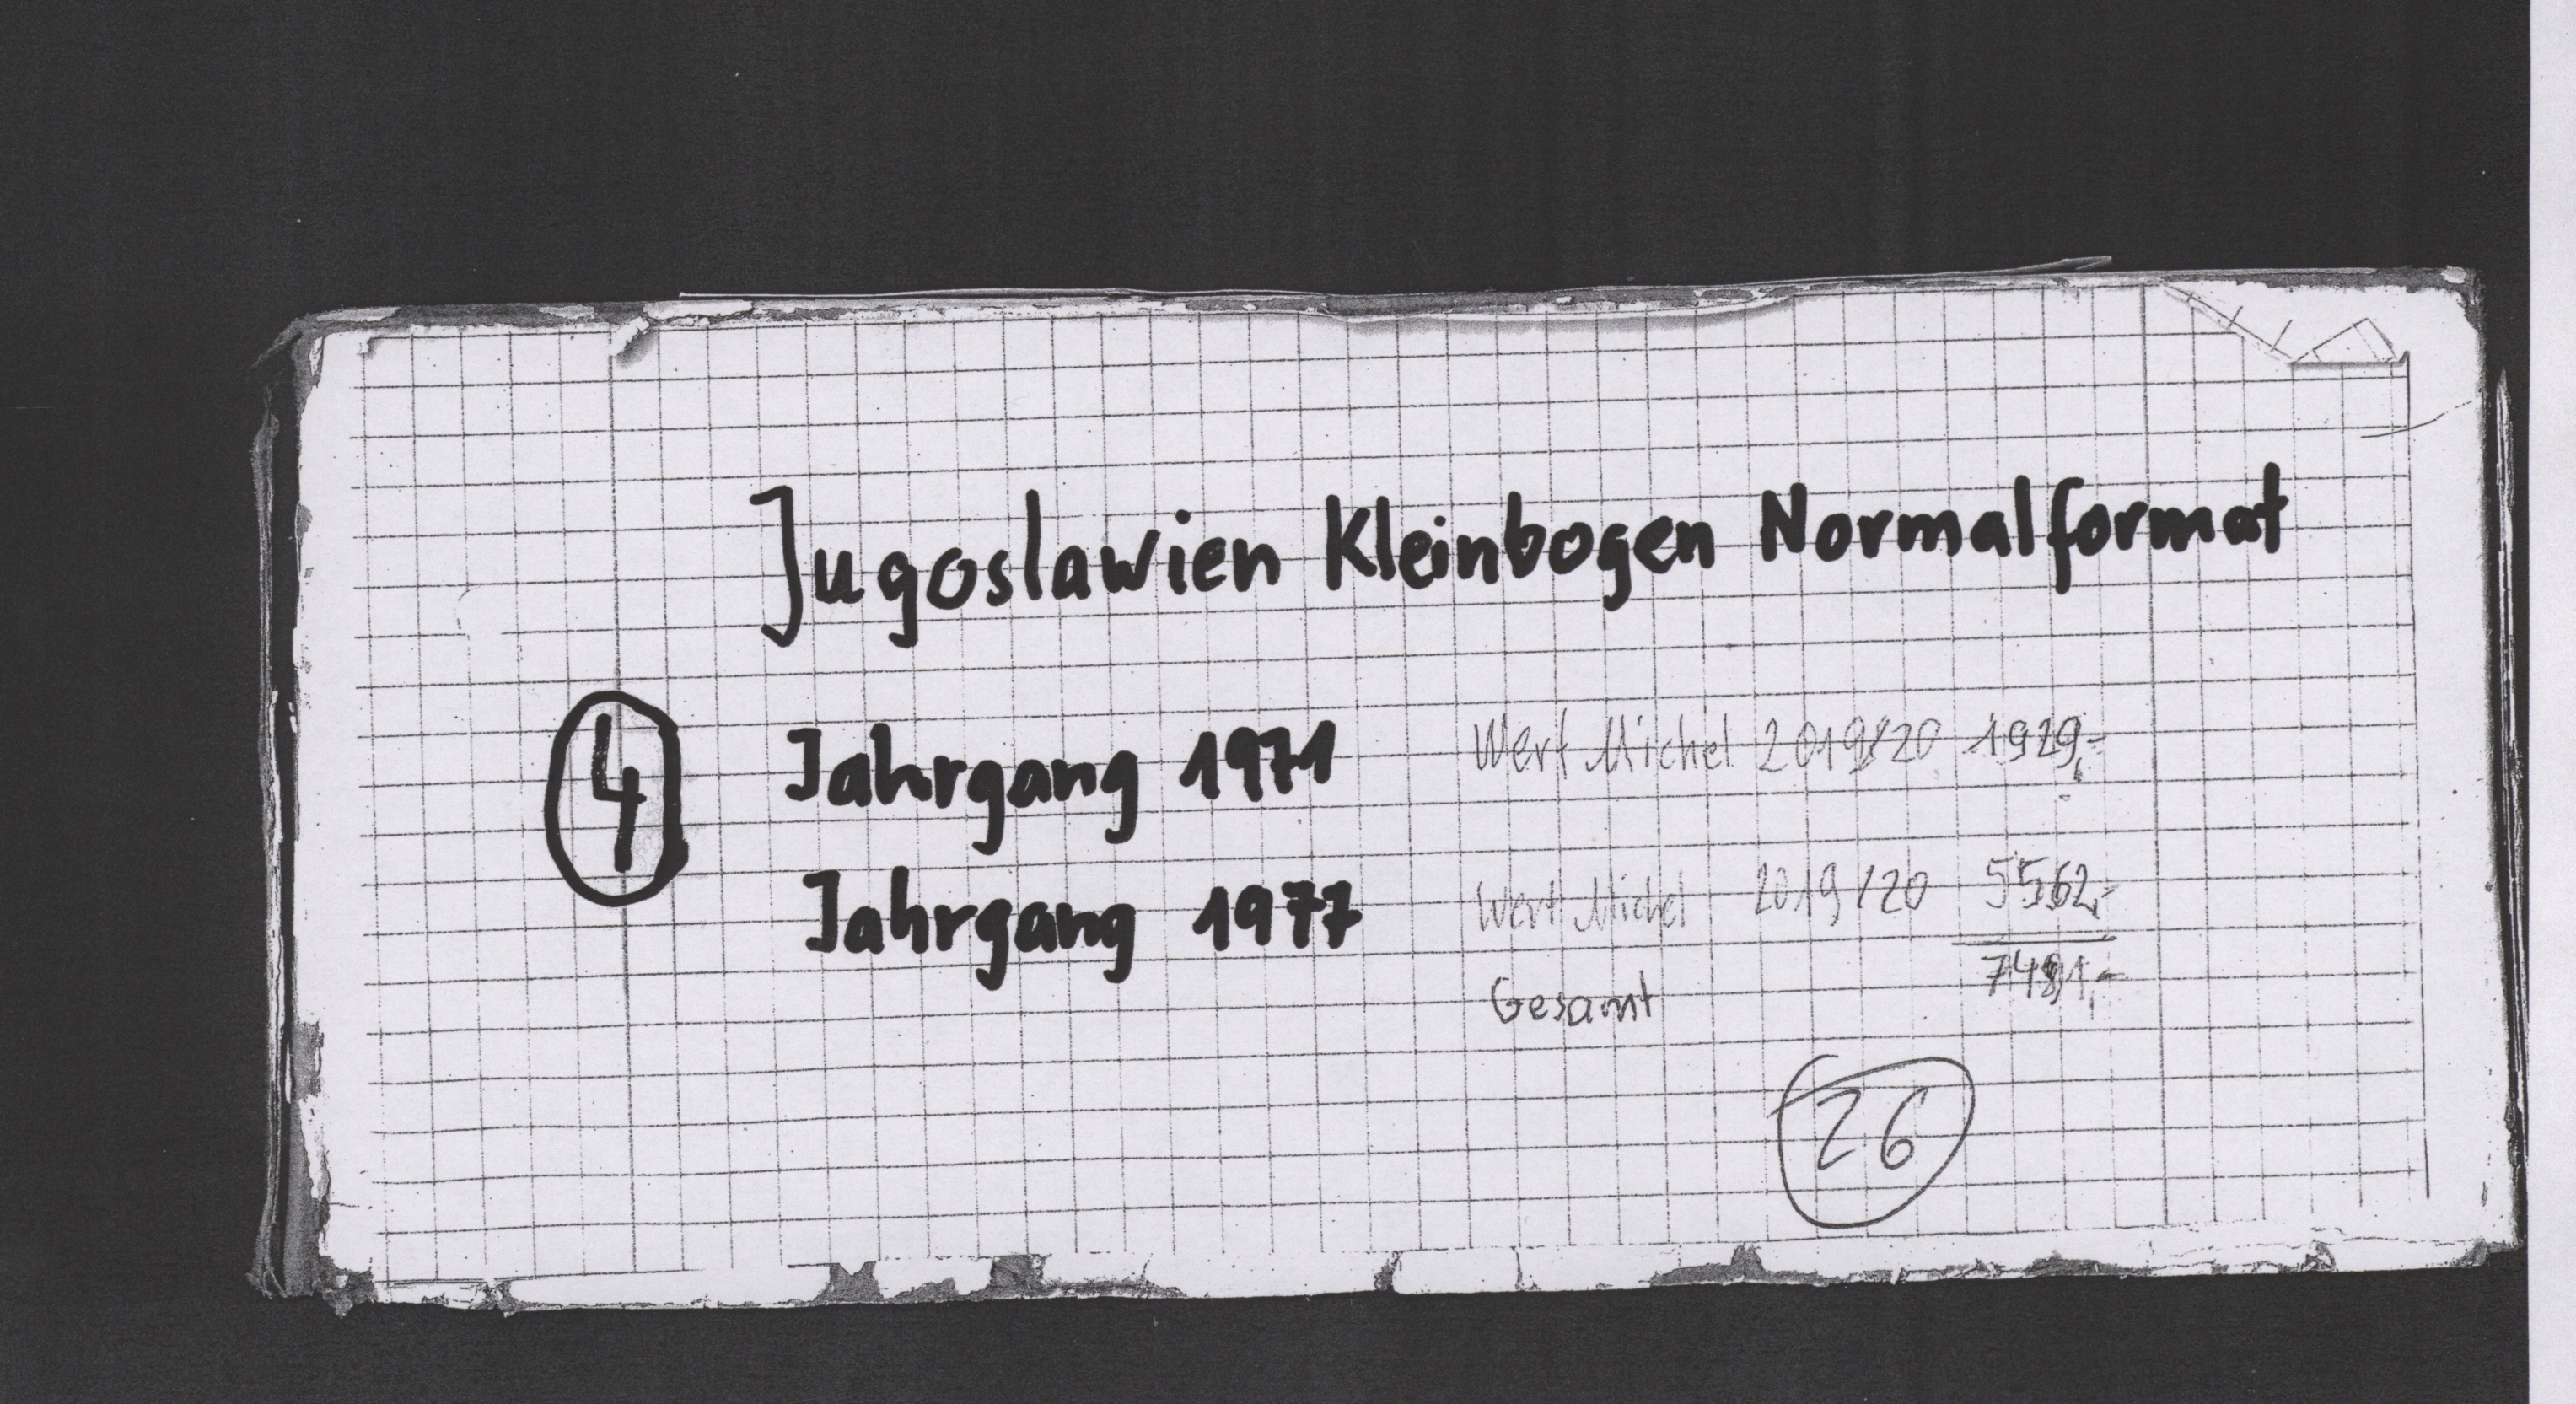 Jugoslawien Kleinbogen Normalformat
4
Jahrgang 1971 Wert Michel 2019/20 1929,-
Jahrgang 1977 Wert Michel 2019/20 5562,-
Gesamt 7491,-
26